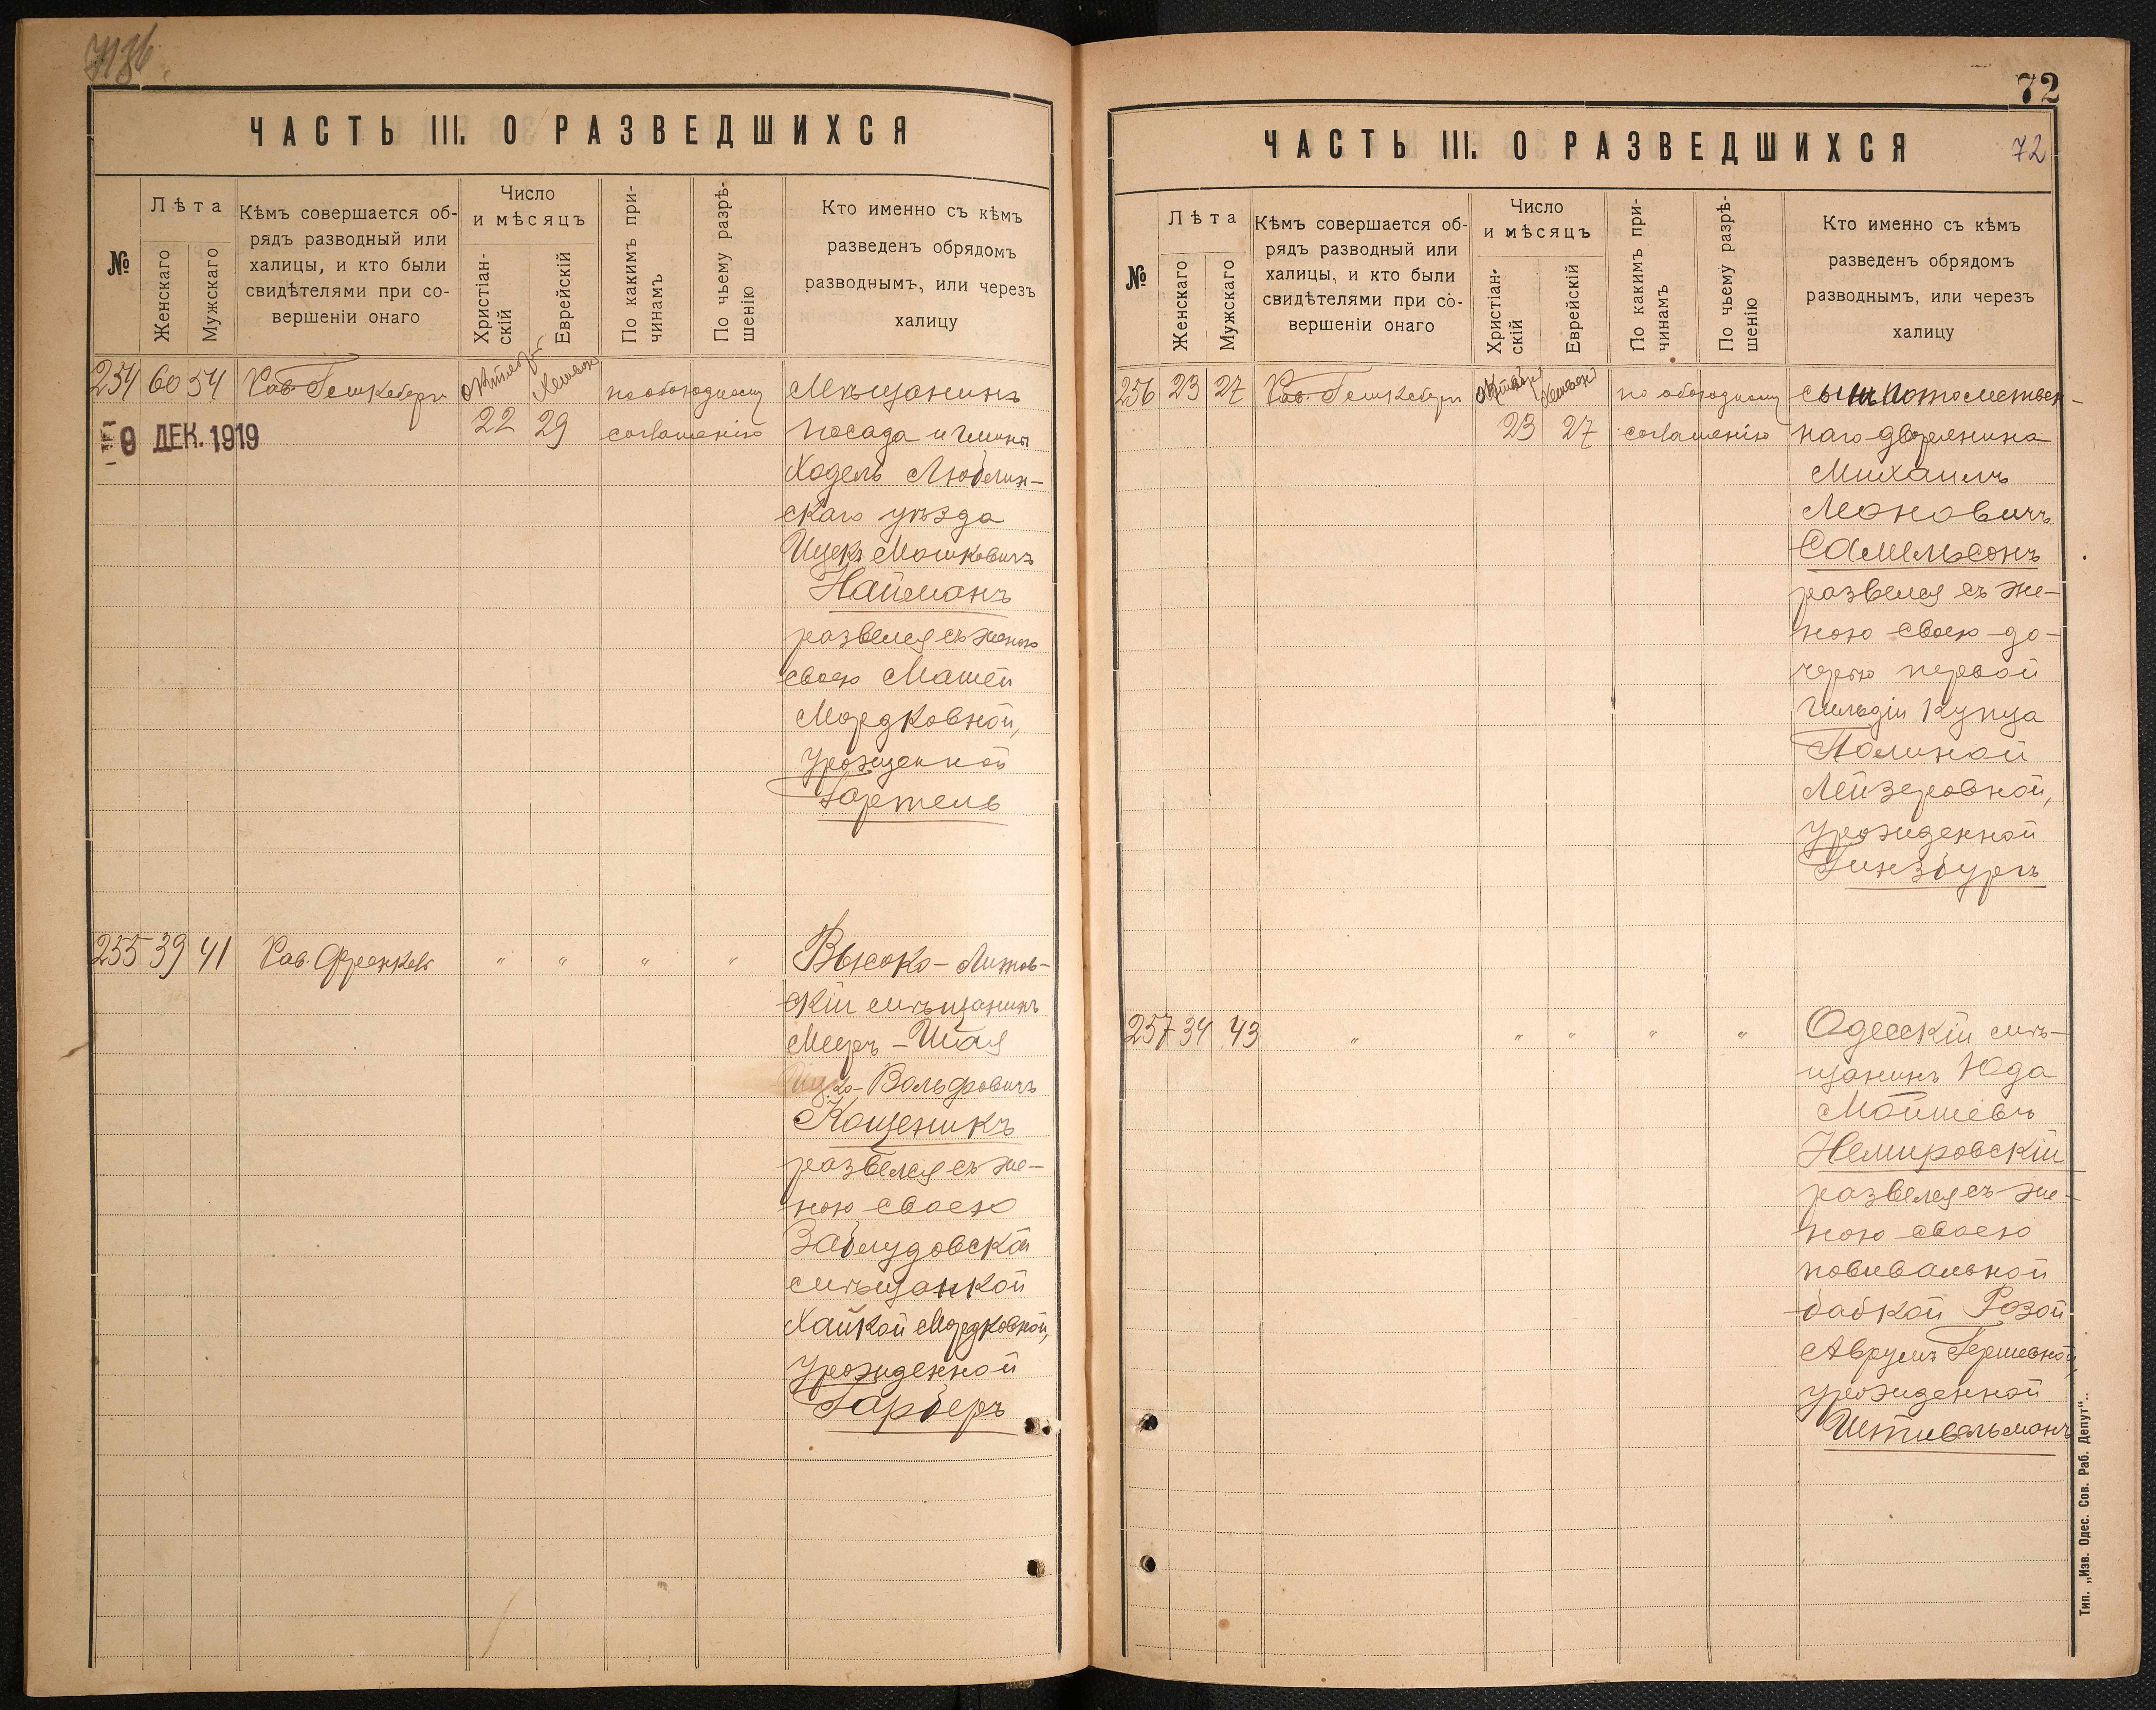 ЧАСТЬ III. О РАЗВЕДШИХСЯ
№
Лѣта
Женскаго
Мужскаго
Кѣмъ совершается об-
рядъ разводный или
халицы, и кто были
свидѣтелями при со-
вершеніи онаго
Число
и мѣсяцъ
Христіан-
скій
Еврейскій
По какимъ при-
чинамъ
По чьему разрѣ-
шенію
Кто именно съ кѣмъ
разведенъ обрядомъ
разводнымъ, или черезъ
халицу
254 60 54 Рав. октябр. Хешвон по обоюдному Мѣщанинъ
9 ДЕК. 1919 22 29 соглашенію посада и гмины
Ходель Люблин-
скаго уѣзда
Ицекъ Мошковичъ
Найманъ
развелся съ женою
своею Машей
Мордковной,
урожденной
Гартель
255 39 41 Рав. Френкель " " " " Высоко-Литов-
скій мѣщанинъ
Мееръ-Шая
Ицко-Вольфовичъ
Кощеникъ
развелся съ же-
ною своею
Заблудовской
мѣщанкой
Хайкой Мордковной,
урожденной
Гарберъ
72
ЧАСТЬ III. О РАЗВЕДШИХСЯ
72
№
Лѣта
Женскаго
Мужскаго
Кѣмъ совершается об-
рядъ разводный или
халицы, и кто были
свидѣтелями при со-
вершеніи онаго
Число
и мѣсяцъ
Христіан-
скій
Еврейскій
По какимъ при-
чинамъ
По чьему разрѣ-
шенію
Кто именно съ кѣмъ
разведенъ обрядомъ
разводнымъ, или черезъ
халицу
256 23 27 Рав. октябр. Хешвон по обоюдному сынъ потомствен-
23 27 соглашенію наго дворянина
Михаилъ
Леоновичъ
Самельсонъ
развелся съ же-
ною своею до-
черью первой
гильдіи купца
Полиной
Лейзеровной,
урожденной
Гинзбургъ
257 34 43 " " " " " Одесскій мѣ-
щанинъ Юда
Мойшевъ
Немировскій
развелся съ же-
ною своею
повивальной
бабкой Розой
Аврумъ Гершевной,
урожденной
Штивельманъ
Тип. „Изв. Одес. Сов. Раб. Депут“.